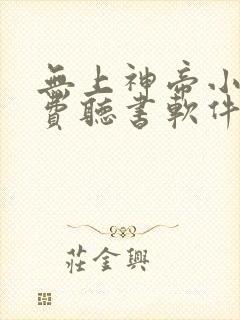 無上神帝小
費聽書軟件
莊金興